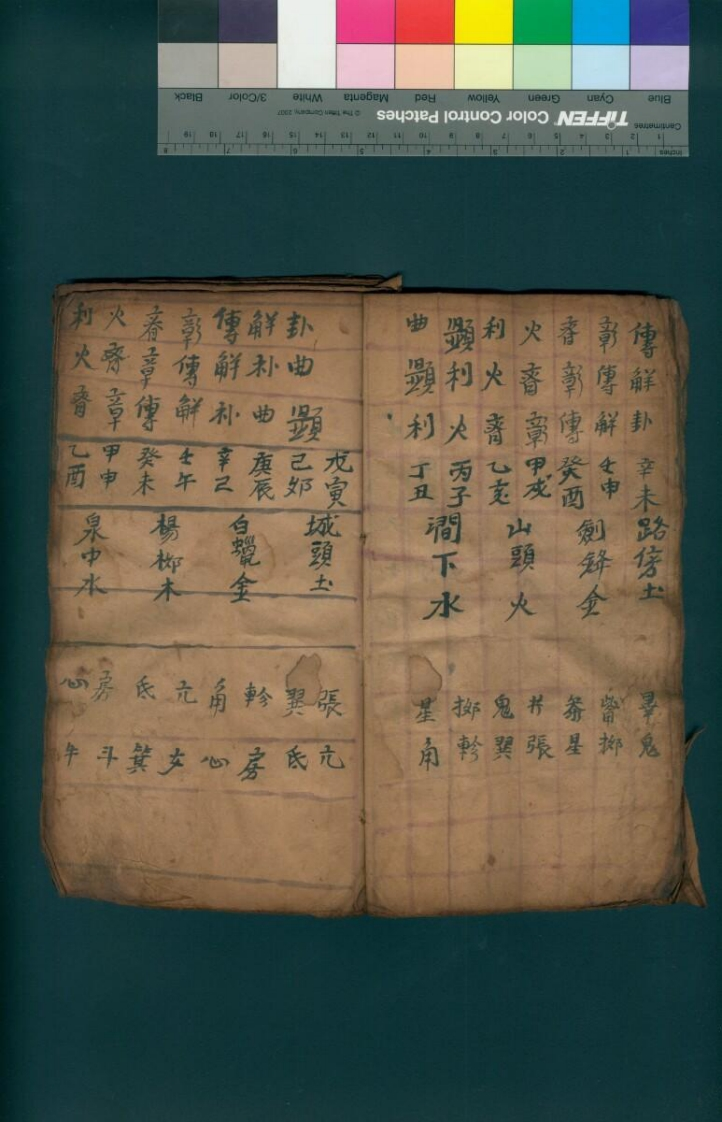 傳解卦辛未路傍土畢鬼
彰傳解壬申觜柳
睿彰傳癸酉劍鋒金參星
火睿彰甲戌井張
利火睿乙亥山頭火鬼翼
顯利火丙子柳軫
曲顯利丁丑澗下水星角
戊寅城頭土張亢
卦曲顯己卯翼氐
解补曲庚辰白蠟金軫房
傳解补辛巳角心
彰傳解壬午亢女
睿章傳癸未楊柳木氐箕
火睿章甲申房斗
利火睿乙酉泉中水心牛
Blue Cyan Green Yellow Red Magenta White 3/Color Black
TIFFEN Color Control Patches © The Tiffen Company, 2007
Centimetres 1 2 3 4 5 6 7 8 9 10 11 12 13 14 15 16 17 18 19
Inches 1 2 3 4 5 6 7 8